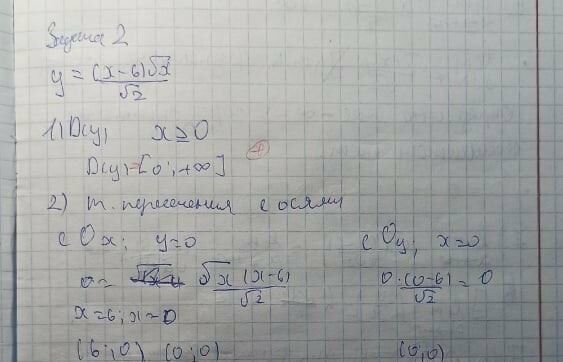 Задача 2
y = (x-6)√x / √2
1) D(y) x ≥ 0
D(y) = [0; +∞] +
2) т. пересечения с осями
с Ox; y=0 с Oy; x=0
0 = √x (x-6) / √2 0·(0-6) / √2 = 0
x=6; x=0
(6;0) (0;0) (0;0)